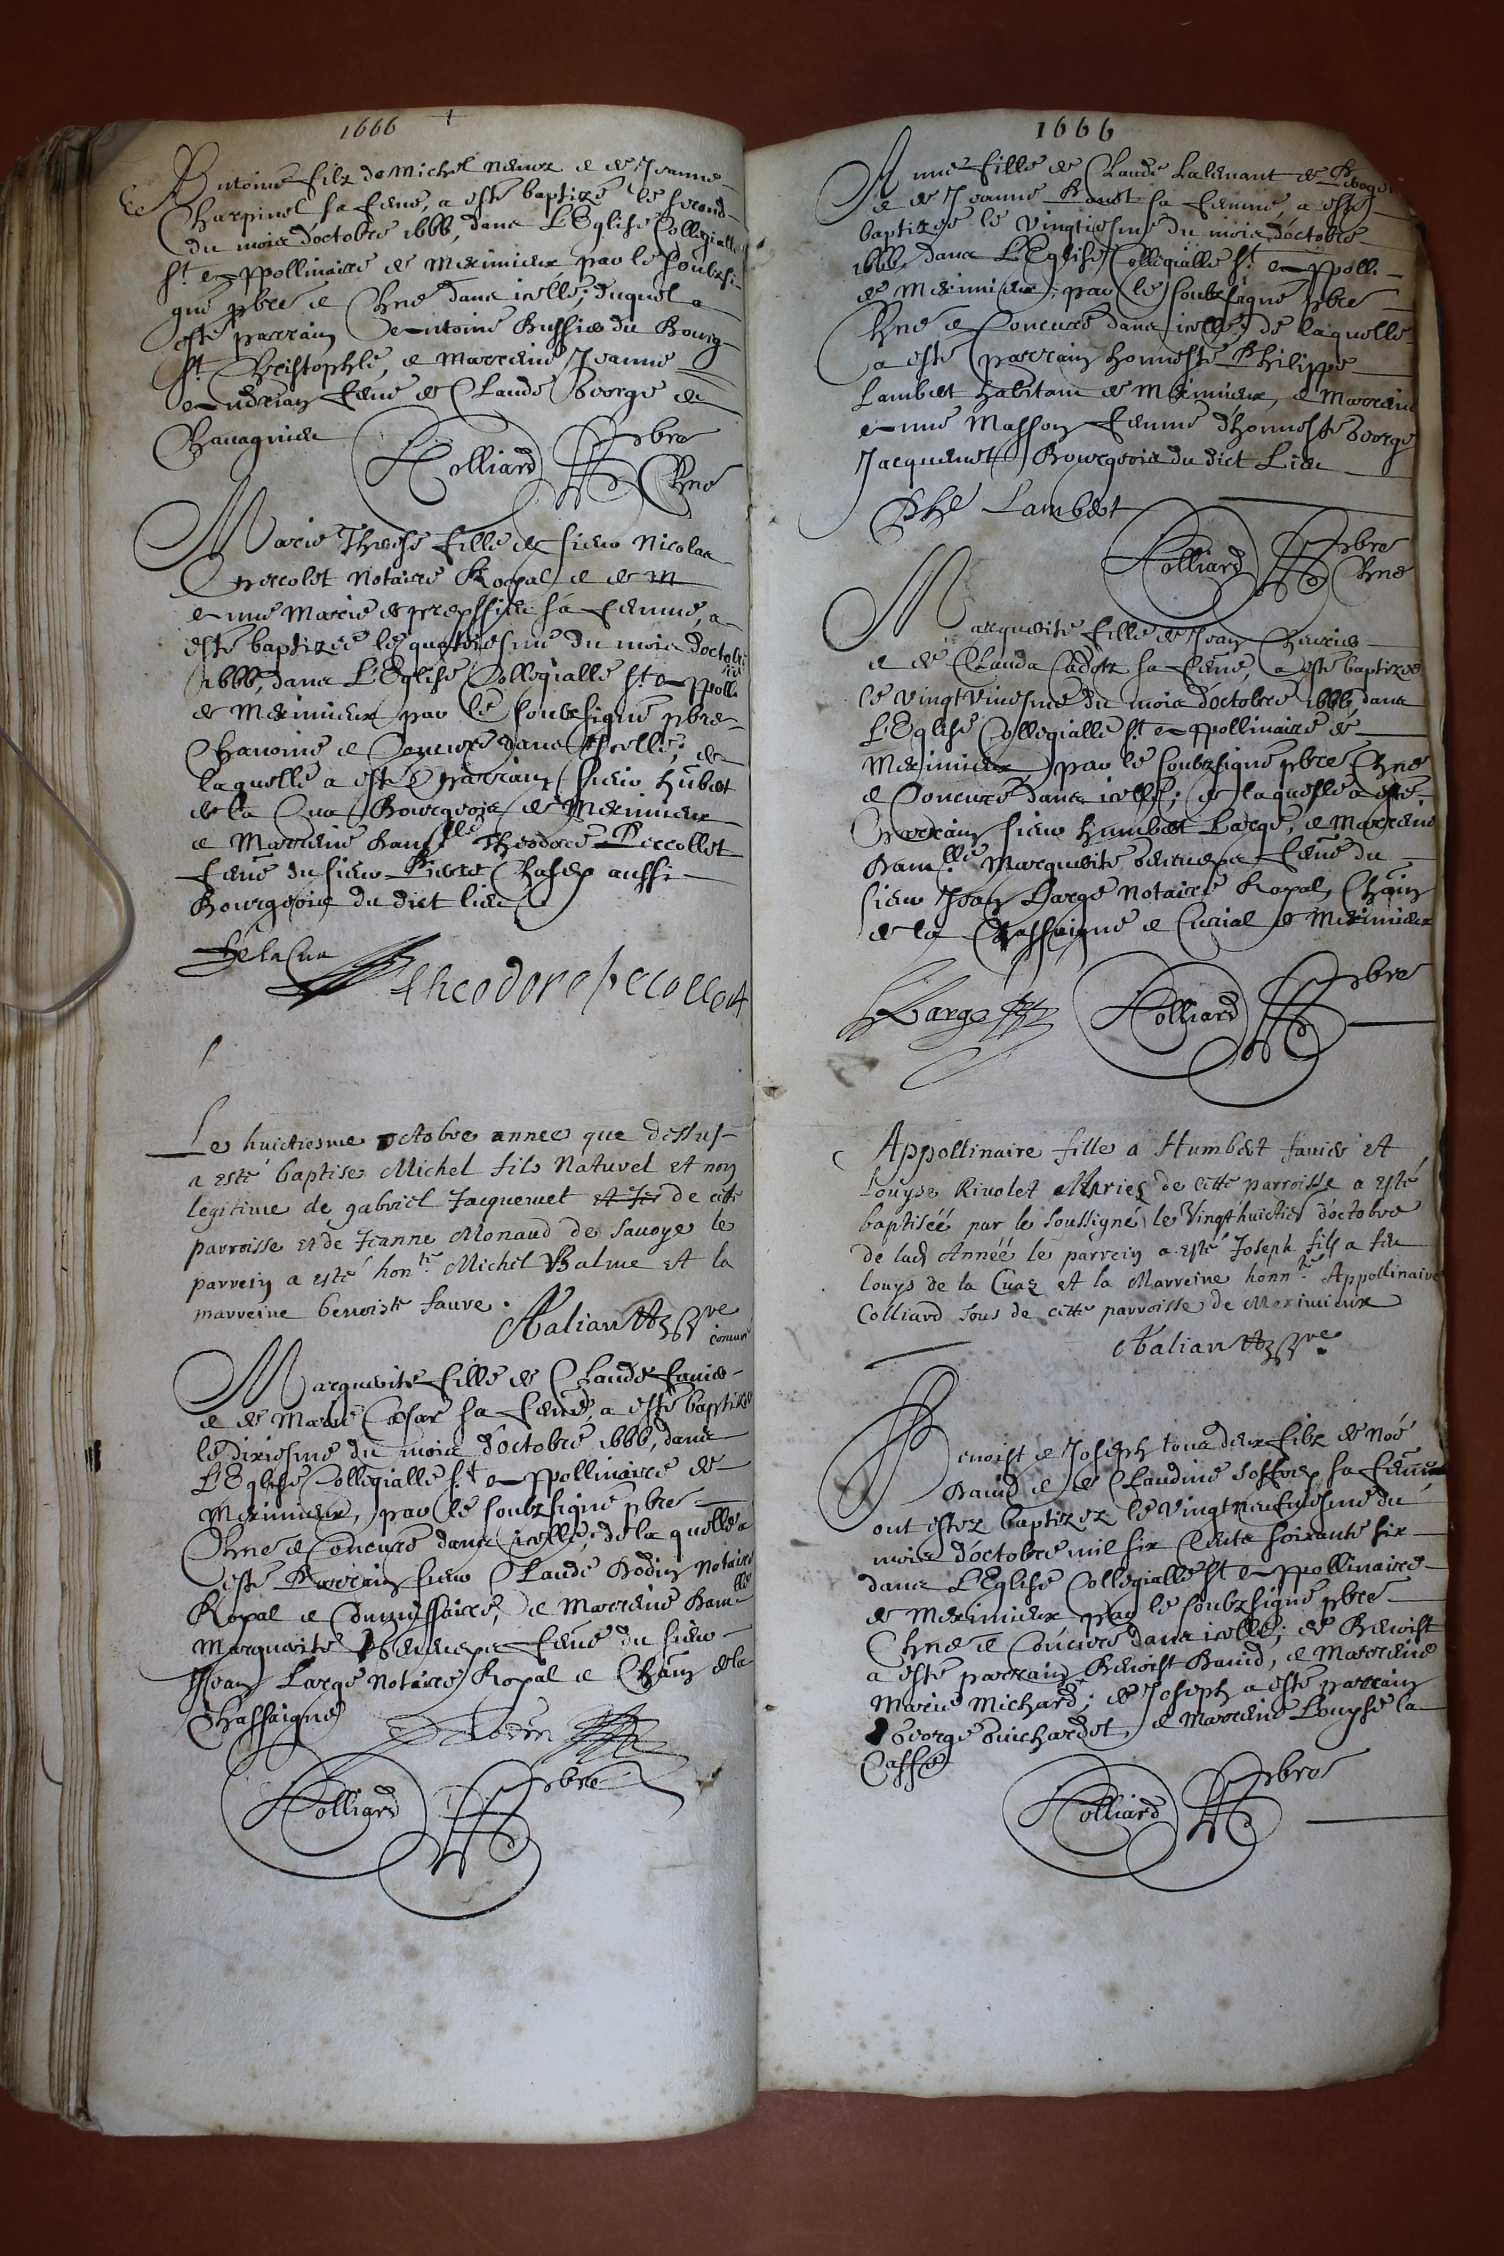 1666
Antoine filz de Michel et de Jeanne
Charpinel sa feme, a esté baptizé le second
du mois d'octobre 1666, dans L'Eglise Collegialle
St Appollinaire de Meximieux par le soubzsi-
gné pbre et Chne dans icelle; duquel a
esté parrain Antoine Bussier du Bourg
St Christophle, et marreine Jeanne
Andrian feme de Claude George de
Chavagnieu
Colliard pbre
Chne
Marie Therese fille de sieur Nicolas
Peccolet Notaire Royal et de
Anne Marie de sa femme, a
esté baptizée le quatriesme du mois d'octobre
1666, dans L'Eglise Collegialle St Appolli
de Meximieux par le soubzsigné pbre
Chanoine et Concuré dans icelle; de
laquelle a esté parrain sieur Hubert
de la Cua Bourgeois de Meximieux
et Marreine Damlle Theodore Peccollet
feme du sieur Pierre Chasey aussi
Bourgeois du dict lieu
De la Cua
Theodore peccollet
Le huictiesme octobre annee que dessus
a esté baptise Michel fils Naturel et non
legitime de gabriel Jacquemet de cette
parroisse et de Jeanne Monaud de Savoye le
parrein a esté honte Michel Balme et la
marreine benoiste faure.
Balian pre
concuré
Marguerite fille de Claude Janier
et de Marie Cesar sa feme, a esté baptizée
le dixiesme du mois d'octobre 1666, dans
L'Eglise Collegialle St Appollinaire de
Meximieux, par le soubzsigné pbre
Chne et Concuré dans icelle; de la quelle a
esté Parrain sieur Claude Bodin Notaire
Royal et Commissaire, et Marreine Damlle
Marguerite feme du sieur
Jean Large Notaire Royal et Chain de la
Chassaigne
Bodin
Colliard pbre
1666
Anne fille de Claude Lalevant de
et de Jeanne sa femme, a esté
baptizée le vingtiesme du mois d'octobre
1666, dans L'Eglise Collegialle St Appolli
de Meximieux, par le soubzsigné pbre
Chne et Concuré dans icelle; de laquelle
a esté parrain honneste Philippe
Lambert habitant de Meximieux, et Marreine
Anne Masson femme d'honneste George
Jacquemet Bourgeois du dict Lieu
Phe Lambert
Colliard pbre
Chne
Marguerite fille de Jean
et de Clauda Cadot sa feme, a esté baptizée
le vingt uniesme du mois d'octobre 1666, dans
L'Eglise Collegialle St Appollinaire de
Meximieux, par le soubzsigné pbre Chne
et Concuré dans icelle; de laquelle a esté
Parrain sieur Humbert Large, et Marreine
Damlle Marguerite feme du
sieur Jean Large Notaire Royal, Chain
de la Chassaigne et Curial de Meximieux
Large
Colliard pbre
Appollinaire fille a Humbert Janier et
Louyse Rivolet Mariez de cette parroisse a esté
baptiséé par le soussigné le Vingt huictier d'octobre
de lad Annéé le parrein a esté Joseph fils a feu
Louys de la Cuaz et la Marreine honnte Appollinaire
Colliard tous de cette parroisse de Meximieux
Balian pre.
Benoist et Joseph tous deux filz de Noé
David et de Claudine Joffrey sa feme
ont estez baptizez le vingt neufiesme du
mois d'octobre mil six cents soixante six
dans L'Eglise Collegialle St Appollinaire
de Meximieux par le soubzsigné pbre
Chne et Concuré dans icelle; de Benoist
a esté parrain Benoist David, et Marreine
Marie Michard; de Joseph a esté parrain
George Guichardot, et Marreine Louyse la
Casse
Colliard pbre